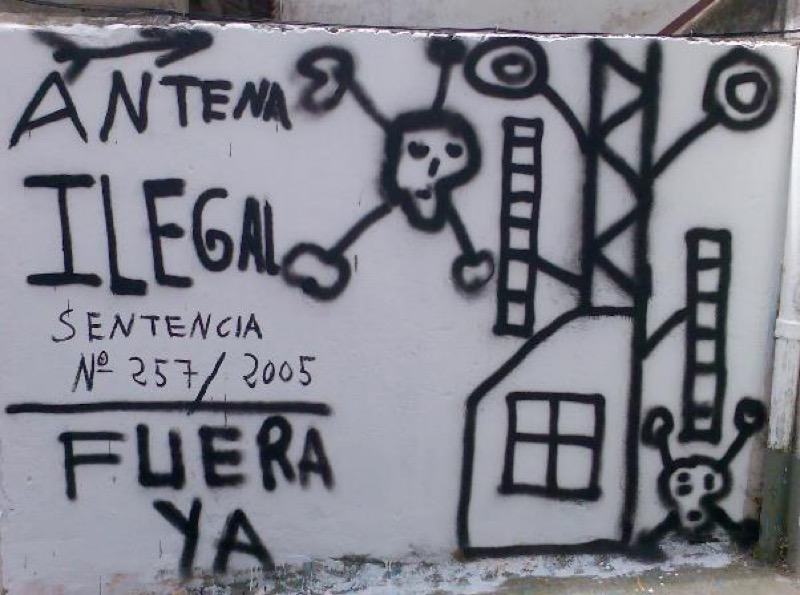 ANTENA
ILEGAL
SENTENCIA
Nº 257/2005
FUERA
YA